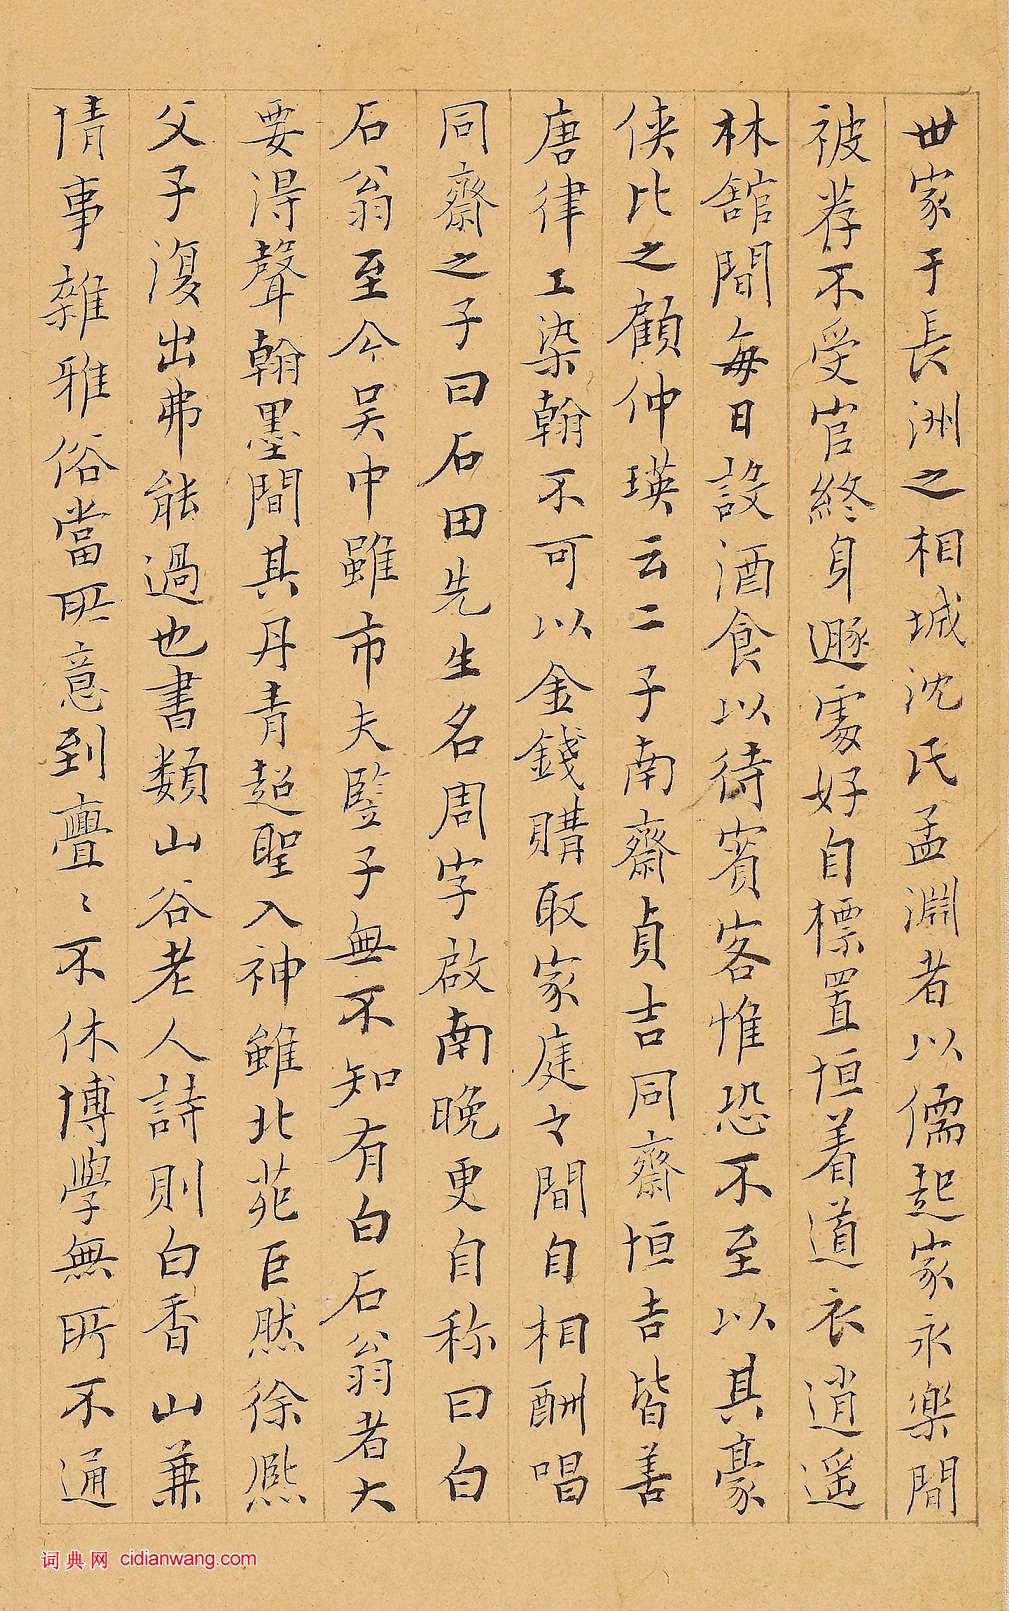 世家于長洲之相城沈氏孟淵者以儒起家永樂間
被荐不受官終身遯處好自標置恒着道衣逍遥
林舘間每日設酒食以待賓客惟恐不至以其豪
侠比之顧仲瑛云二子南齋貞吉同齋恒吉皆善
唐律工染翰不可以金錢購取家庭之間自相酬唱
同齋之子曰石田先生名周字啟南晚更自称曰白
石翁至今吴中雖市夫豎子無不知有白石翁者大
要得聲翰墨間其丹青超聖入神雖北苑巨然徐熈
父子復出弗能過也書類山谷老人詩則白香山兼
情事雜雅俗當所意到亹〻不休博學無所不通
词典网 cidianwang.com